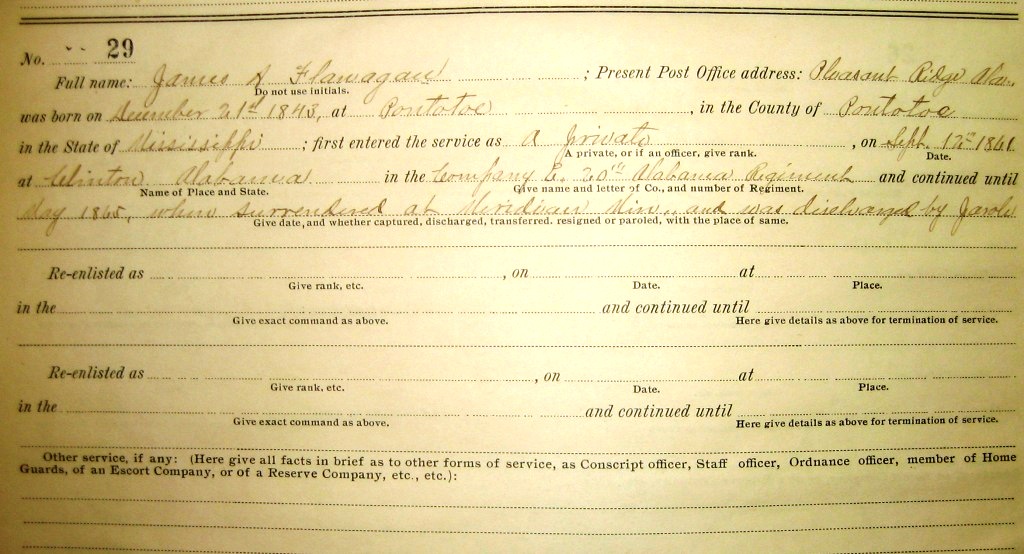 No. 29
Full name: James A Flanagan ; Present Post Office address: Pleasant Ridge Ala.
Do not use initials.
was born on December 21st 1843, at Pontotoc , in the County of Pontotoc
in the State of Mississippi ; first entered the service as A Private , on Sept. 12th 1861
A private, or if an officer, give rank. Date.
at Clinton Alabama in the Company C. 20th Alabama Regiment and continued until
Name of Place and State. Give name and letter of Co., and number of Regiment.
May 1865, when surrendered at Meridian Miss., and was discharged by Parole
Give date, and whether captured, discharged, transferred. resigned or paroled, with the place of same.
Re-enlisted as , on at
Give rank, etc. Date. Place.
in the and continued until
Give exact command as above. Here give details as above for termination of service.
Re-enlisted as , on at
Give rank, etc. Date. Place.
in the and continued until
Give exact command as above. Here give details as above for termination of service.
Other service, if any: (Here give all facts in brief as to other forms of service, as Conscript officer, Staff officer, Ordnance officer, member of Home
Guards, of an Escort Company, or of a Reserve Company, etc., etc.):